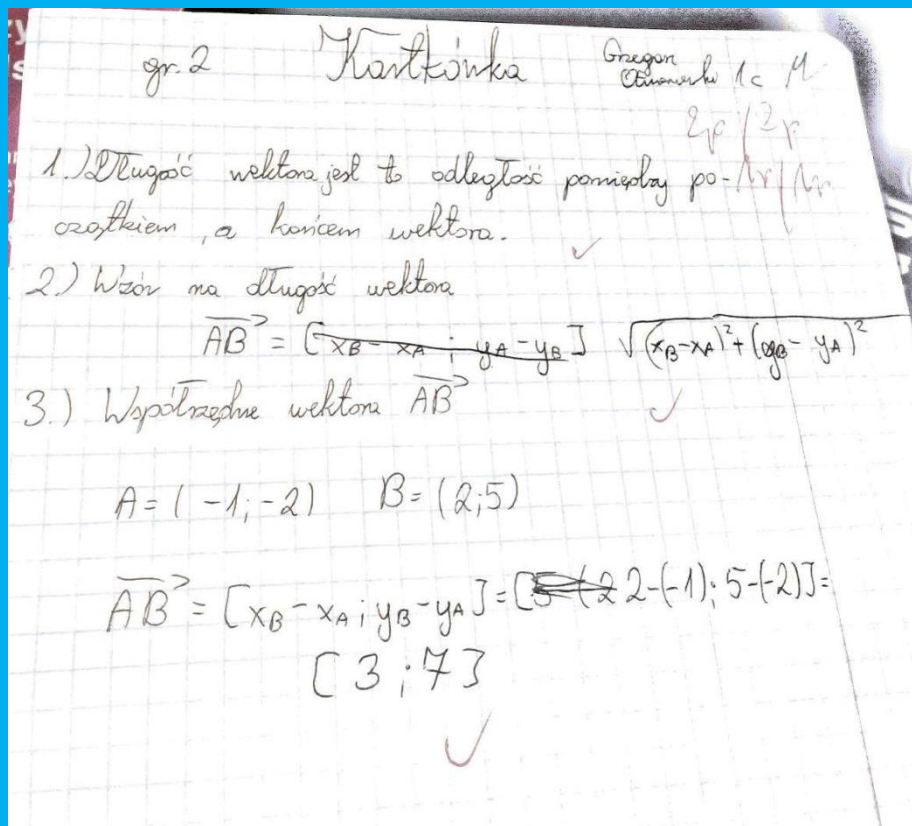 gr. 2 Kartkówka Grzegorz 1c
2p / 2p
1.) Długość wektora jest to odległość pomiędzy po-
czątkiem, a końcem wektora.
2.) Wzór na długość wektora
AB = [xB - xA ; yA - yB] √(xB-xA)²+(yB-yA)²
3.) Współrzędne wektora AB
A = (-1;-2) B = (2;5)
AB = [xB - xA ; yB - yA] = [5-(2 2-(-1); 5-(-2)] =
[3 ; 7]